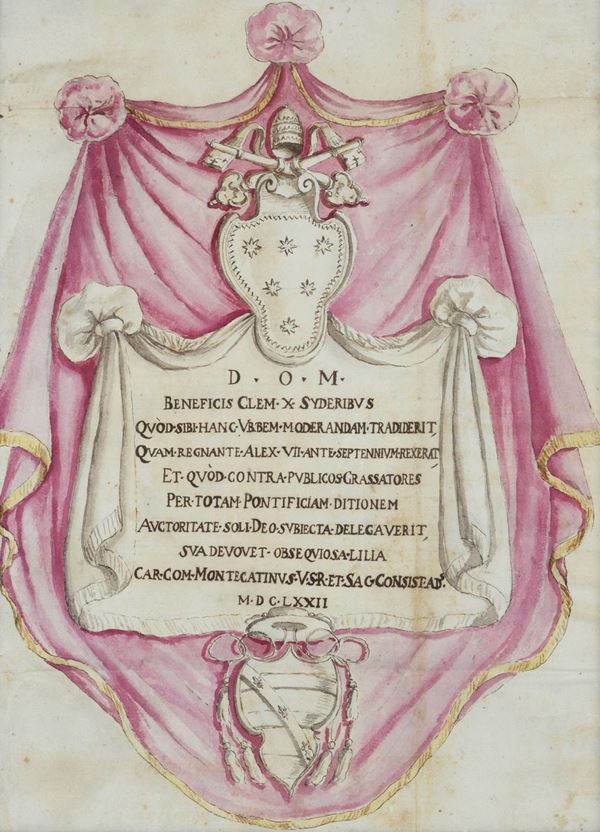 D · O · M ·
BENEFICIS CLEM · X · SYDERIBVS
QVÒD · SIBI · HANC · VRBEM · MODERANDAM · TRADIDERIT,
QVAM · REGNANTE · ALEX · VII · ANTE · SEPTENNIVM · REXERAT,
ET · QVÒD · CONTRA · PVBLICOS · GRASSATORES
PER · TOTAM · PONTIFICIAM · DITIONEM
AVCTORITATE · SOLI · DEO · SVBIECTA · DELEGAVERIT,
SVA · DEVOVET · OBSEQVIOSA · LILIA
CAR · COM · MONTECATINVS · V · S · R · ET · SAC · CONSIST · AD.
M · D C · LXXII